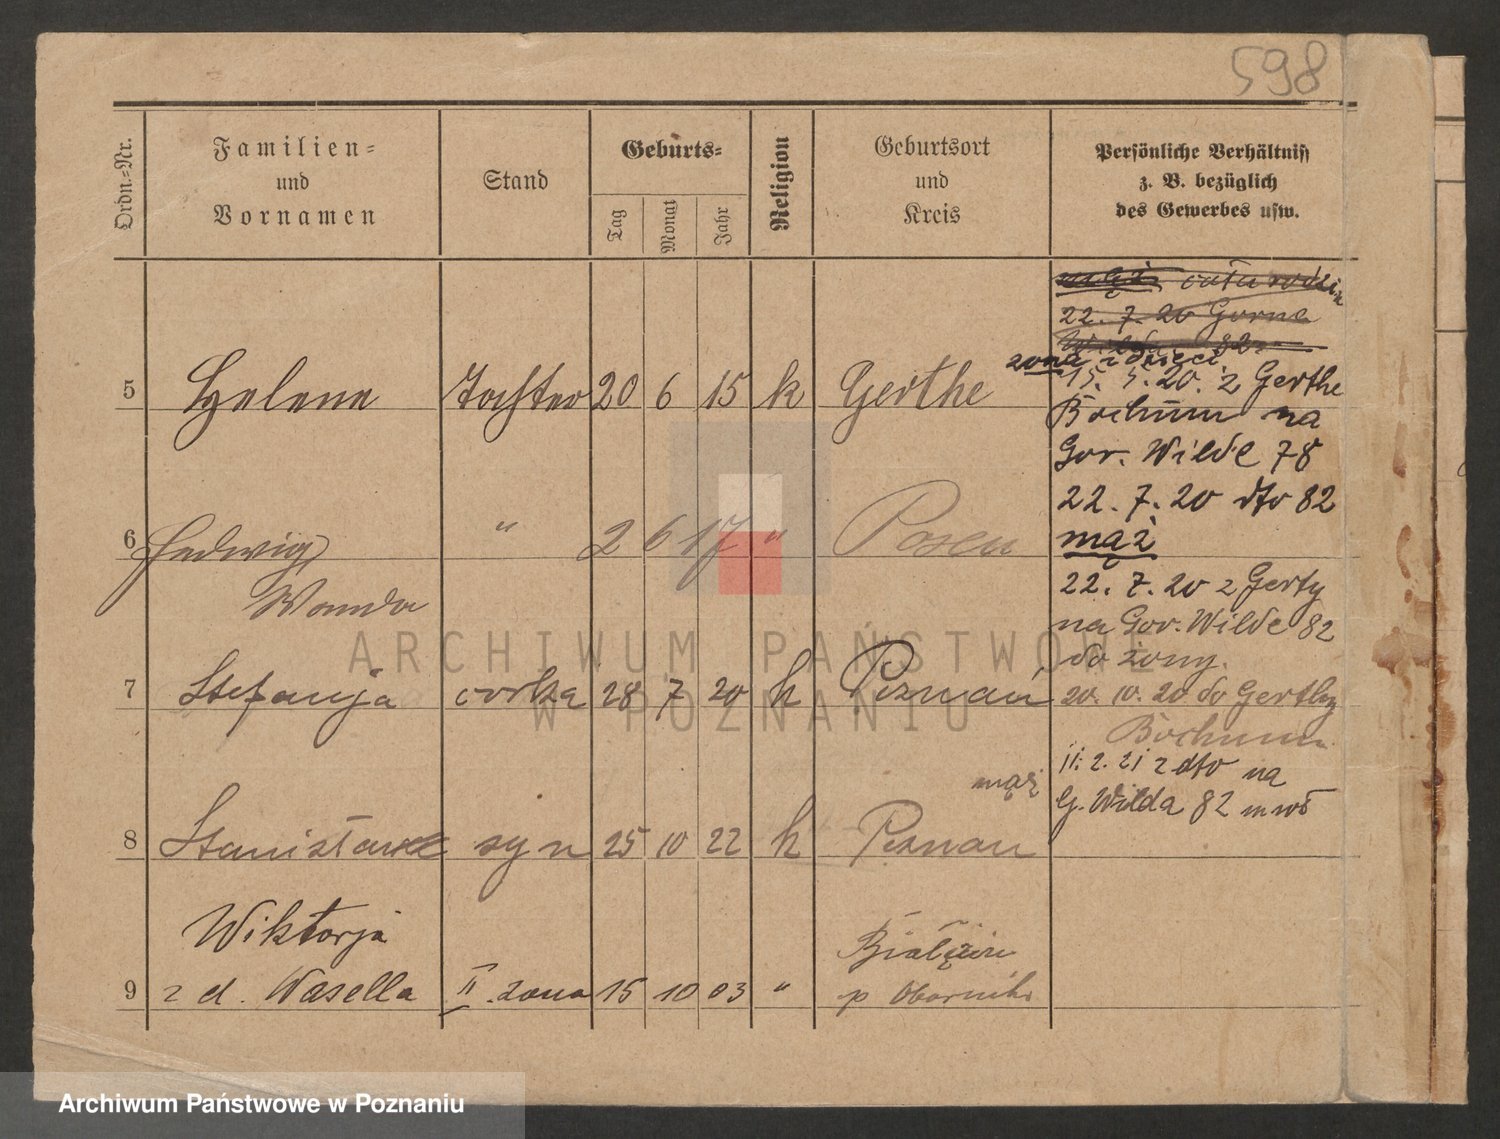 598
Ordn.=Nr.
Familien=
und
Vornamen
Stand
Geburts=
Tag
Monat
Jahr
Religion
Geburtsort
und
Kreis
Persönliche Verhältniss
z. B. bezüglich
des Gewerbes usw.
22. 7. 20 Gorna
82
żona i dzieci
5 Helene Tochter 20 6 15 k Gerthe
15. 5. 20. z Gerthe
Bochum na
Gor. Wilde 78
22. 7. 20 dto 82
6 Hedwig " 2 6 17 " Posen
Wanda
mąż
22. 7. 20 z Gerty
na Gor. Wilde 82
do żony.
7 Stefanja corka 28 7 20 k Poznań
20. 10. 20 do Gerthy
Bochum
mąż 11. 2. 21 z dto na
G. Wilda 82 m wś
8 Stanisław syn 25 10 22 k Poznań
Wiktorja
9 z d. Wasella II. żona 15 10 03 "
p Oborniki
ARCHIWUM PAŃSTWOWE
W POZNANIU
Archiwum Państwowe w Poznaniu